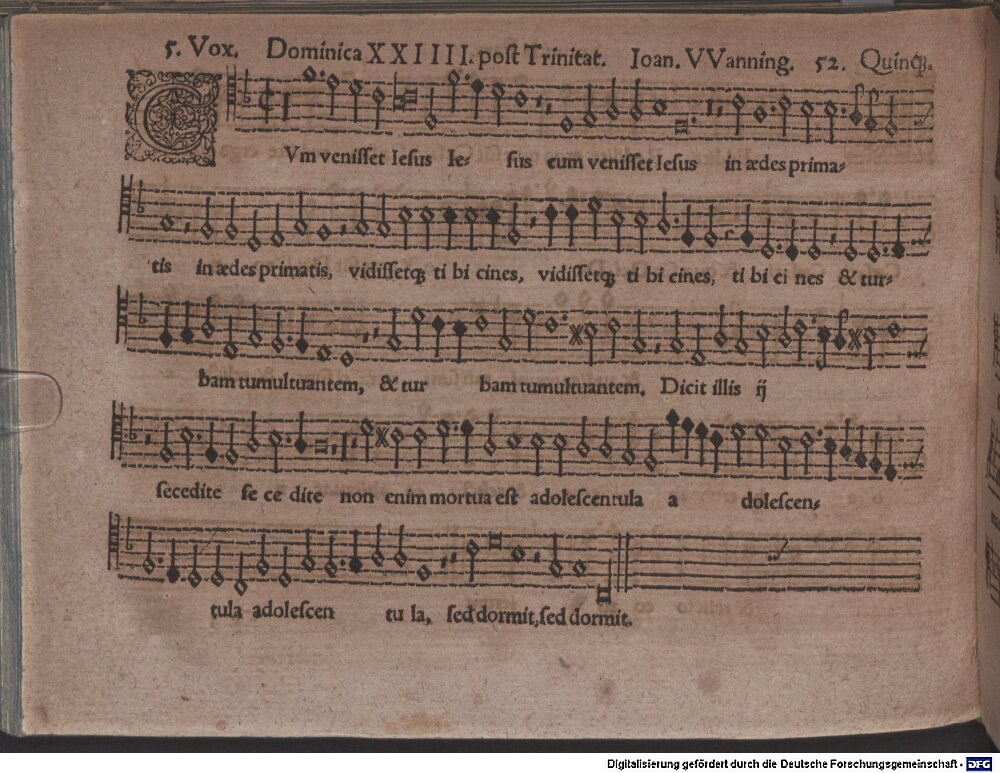 5. Vox. Dominica XXIIII. post Trinitat. Ioan. VVanning. 52. Quinq;.
CVm venisset Iesus Ie- sus cum venisset Iesus in ædes prima-
tis in ædes primatis, vidissetq; ti bi cines, vidissetq; ti bi cines, ti bi ci nes & tur-
bam tumultuantem, & tur bam tumultuantem. Dicit illis ij
secedite se ce dite non enim mortua est adolescentula a dolescen-
tula adolescen tu la, sed dormit, sed dormit.
Digitalisierung gefördert durch die Deutsche Forschungsgemeinschaft - DFG